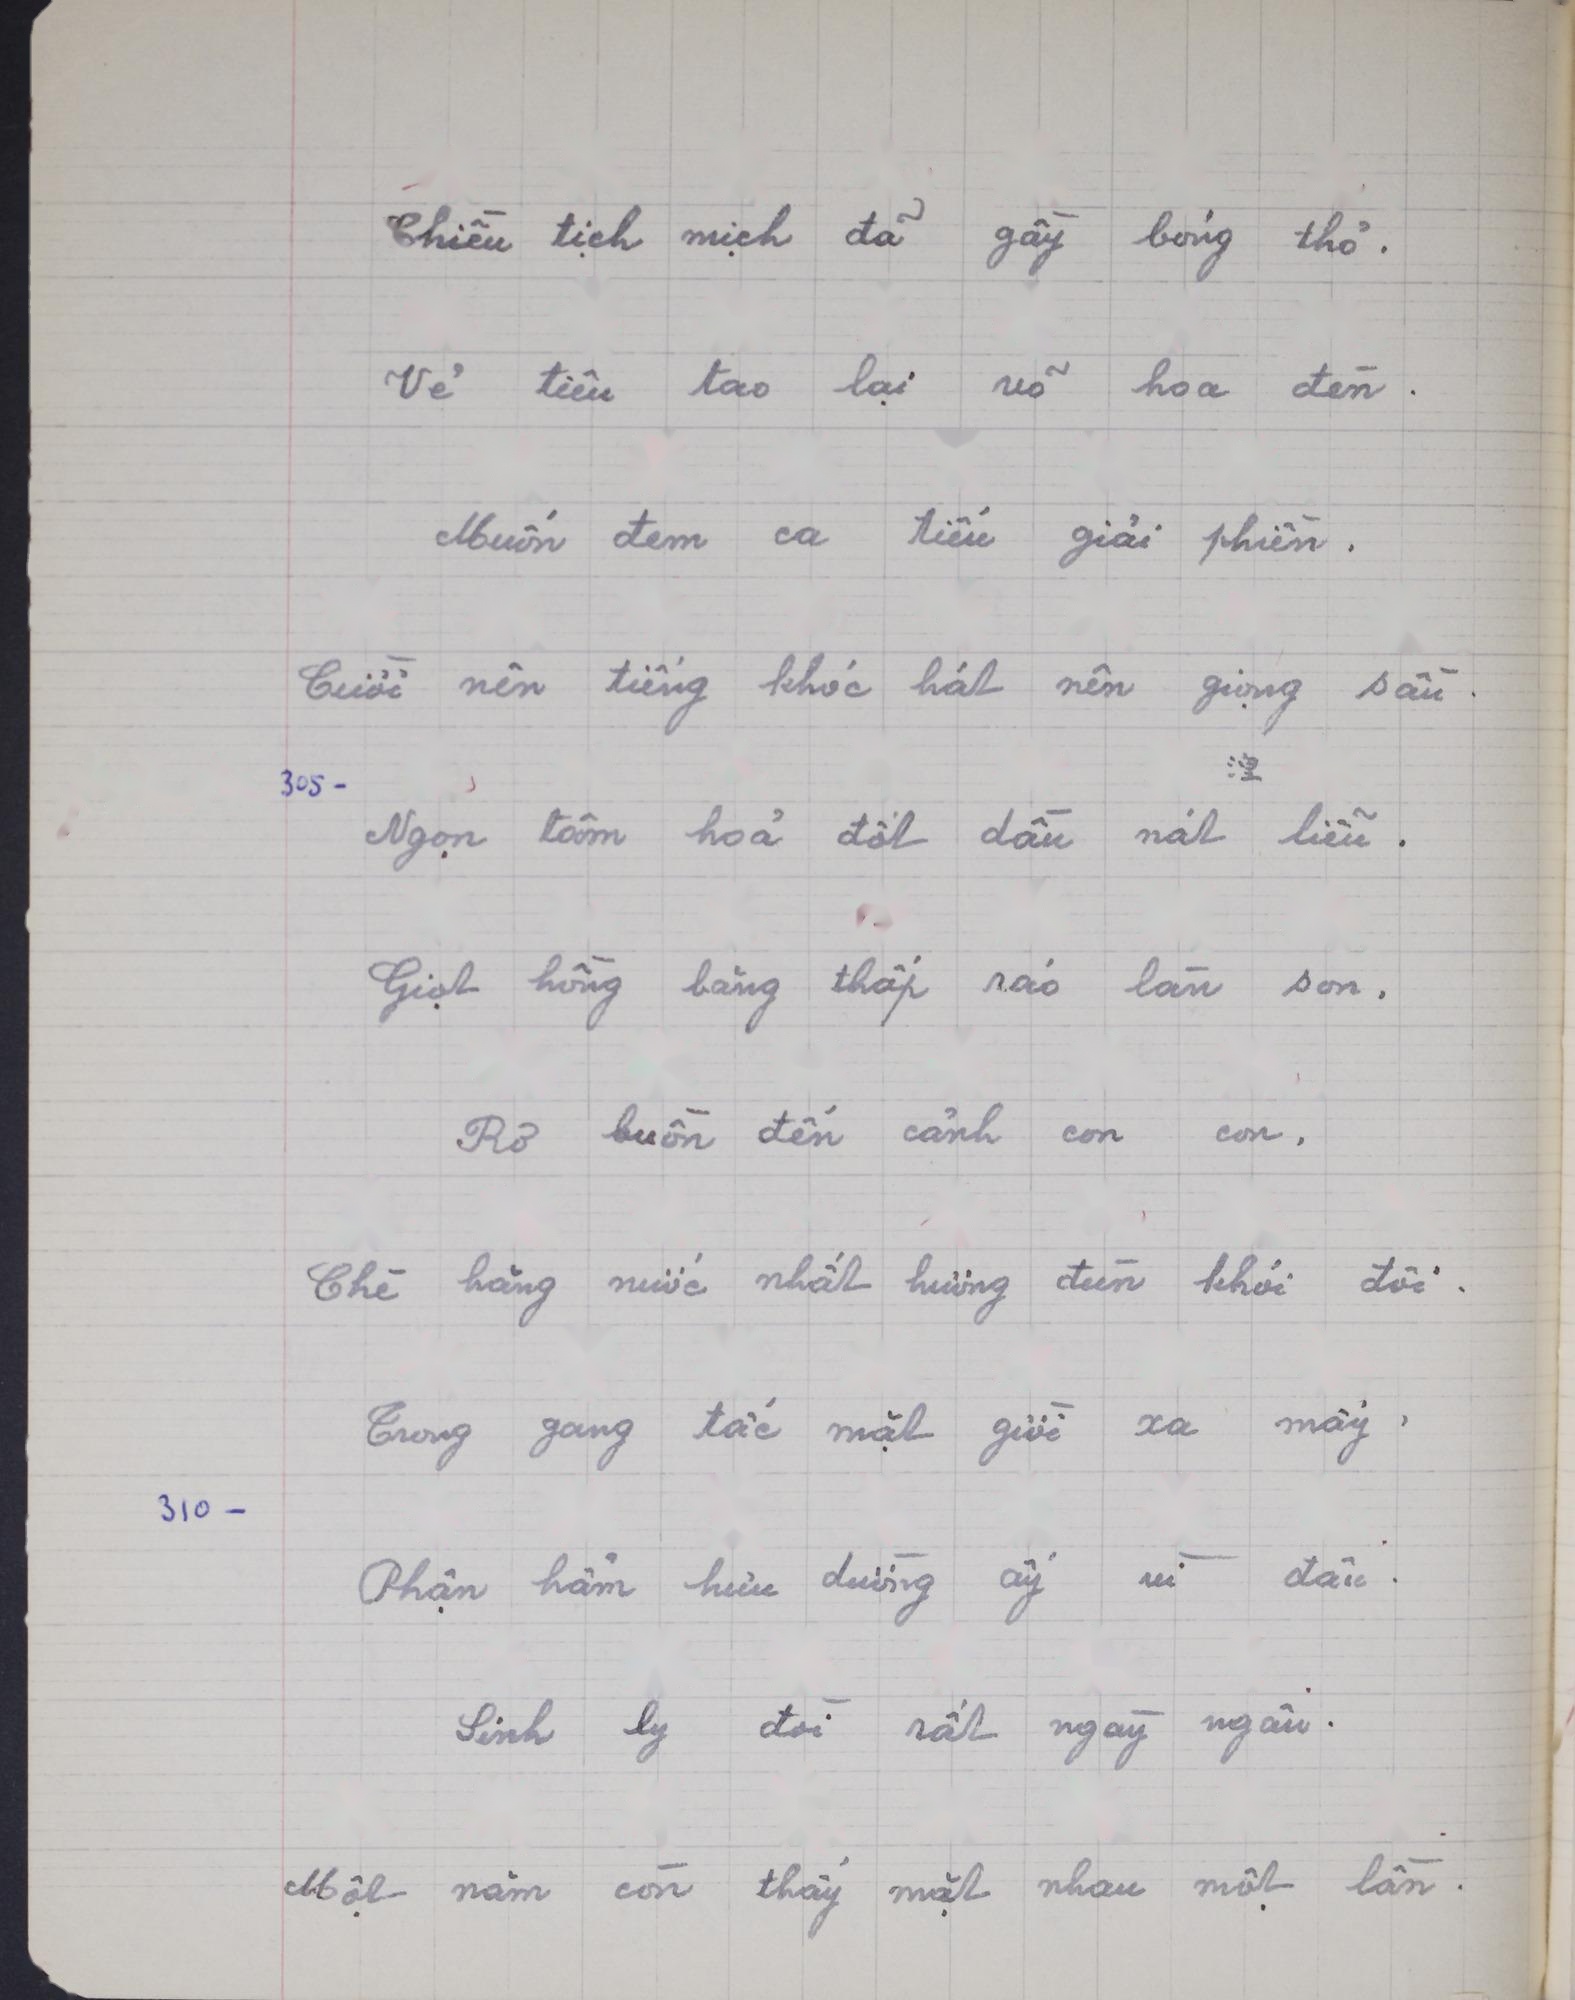 Chiều tịch mịch đã gầy bóng thỏ.
Vẻ tiêu tao lại võ hoa đèn.
Muốn đem ca tiếu giải phiền.
Cười nên tiếng khóc hát nên giọng sầu.
305-
Ngọn tâm hoả đốt dầu nát liễu.
Giọt hồng băng thấp ráo làn son.
Rỡ buồn đến cảnh con con.
Chè hăng nước nhất hương đun khói đôi.
Trong gang tấc mặt giời xa mấy.
310-
Phận hẩm hưu dường ấy vì đâu.
Sinh ly đòi rất ngày ngâu.
Một năm còn thấy mặt nhau một lần.